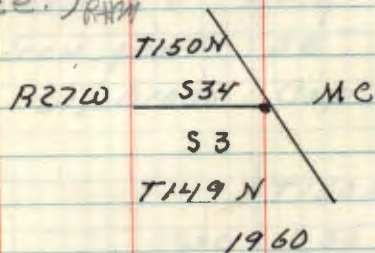 T150N
R27W S34 MC
S3
T149N
1960